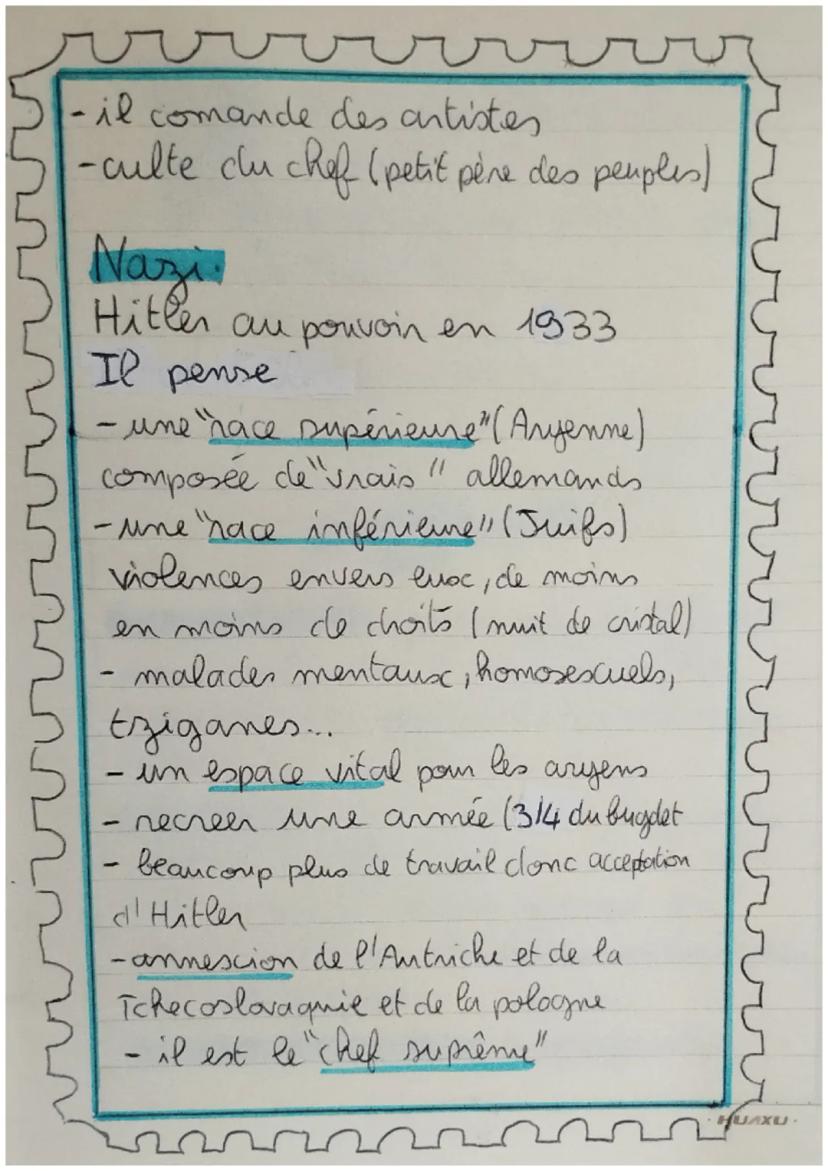 - il comande des artistes
- culte du chef (petit père des peuples)
Nazi.
Hitler au pouvoir en 1933
Il pense
- une "race supérieure" (Aryenne)
composée de "vrais" allemands
- une "race inférieure" (Juifs)
violences envers eux, de moins
en moins de droits (nuit de cristal)
- malades mentaux, homosexuels,
tziganes...
- un espace vital pour les aryens
- recreer une armée (3/4 du bugdet
- beaucoup plus de travail donc acceptation
d'Hitler
- annexion de l'Autriche et de la
Tchecoslovaquie et de la pologne
- il est le "chef suprême"
HUAXU